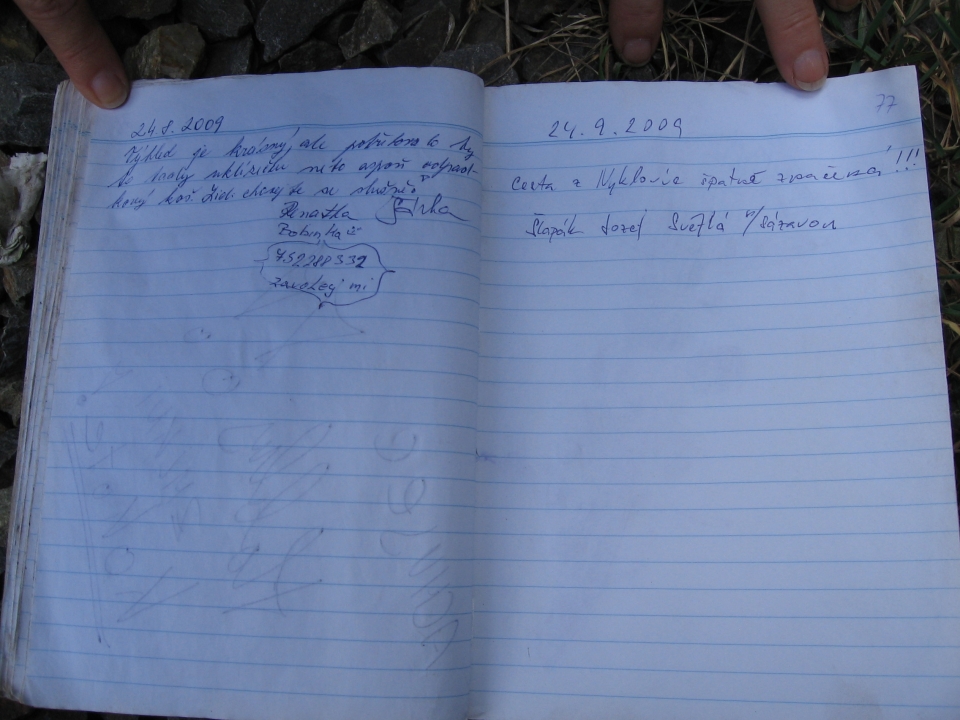 24.8.2009
Výhled je krásný, ale potřebovalo by
to tady uklízečku nebo aspoň odpad-
kový koš. Lidi chovejte se slušně
Renatka Šárka
752288332
zavolej mi
77
24.9.2009
cesta z Nyklovic špatně značená!!!
Šlapák Jozef Světlá n/Sázavou